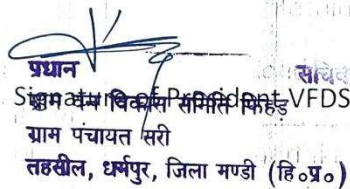 प्रधान सचिव
Signature of President VFDS
ग्राम वन विकास समिति फिहड़
ग्राम पंचायत सरी
तहसील, धर्मपुर, जिला मण्डी (हि०प्र०)